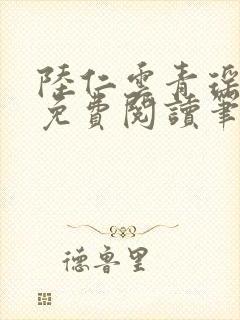 陸仁雲青瑶
免費閱讀筆
德魯里